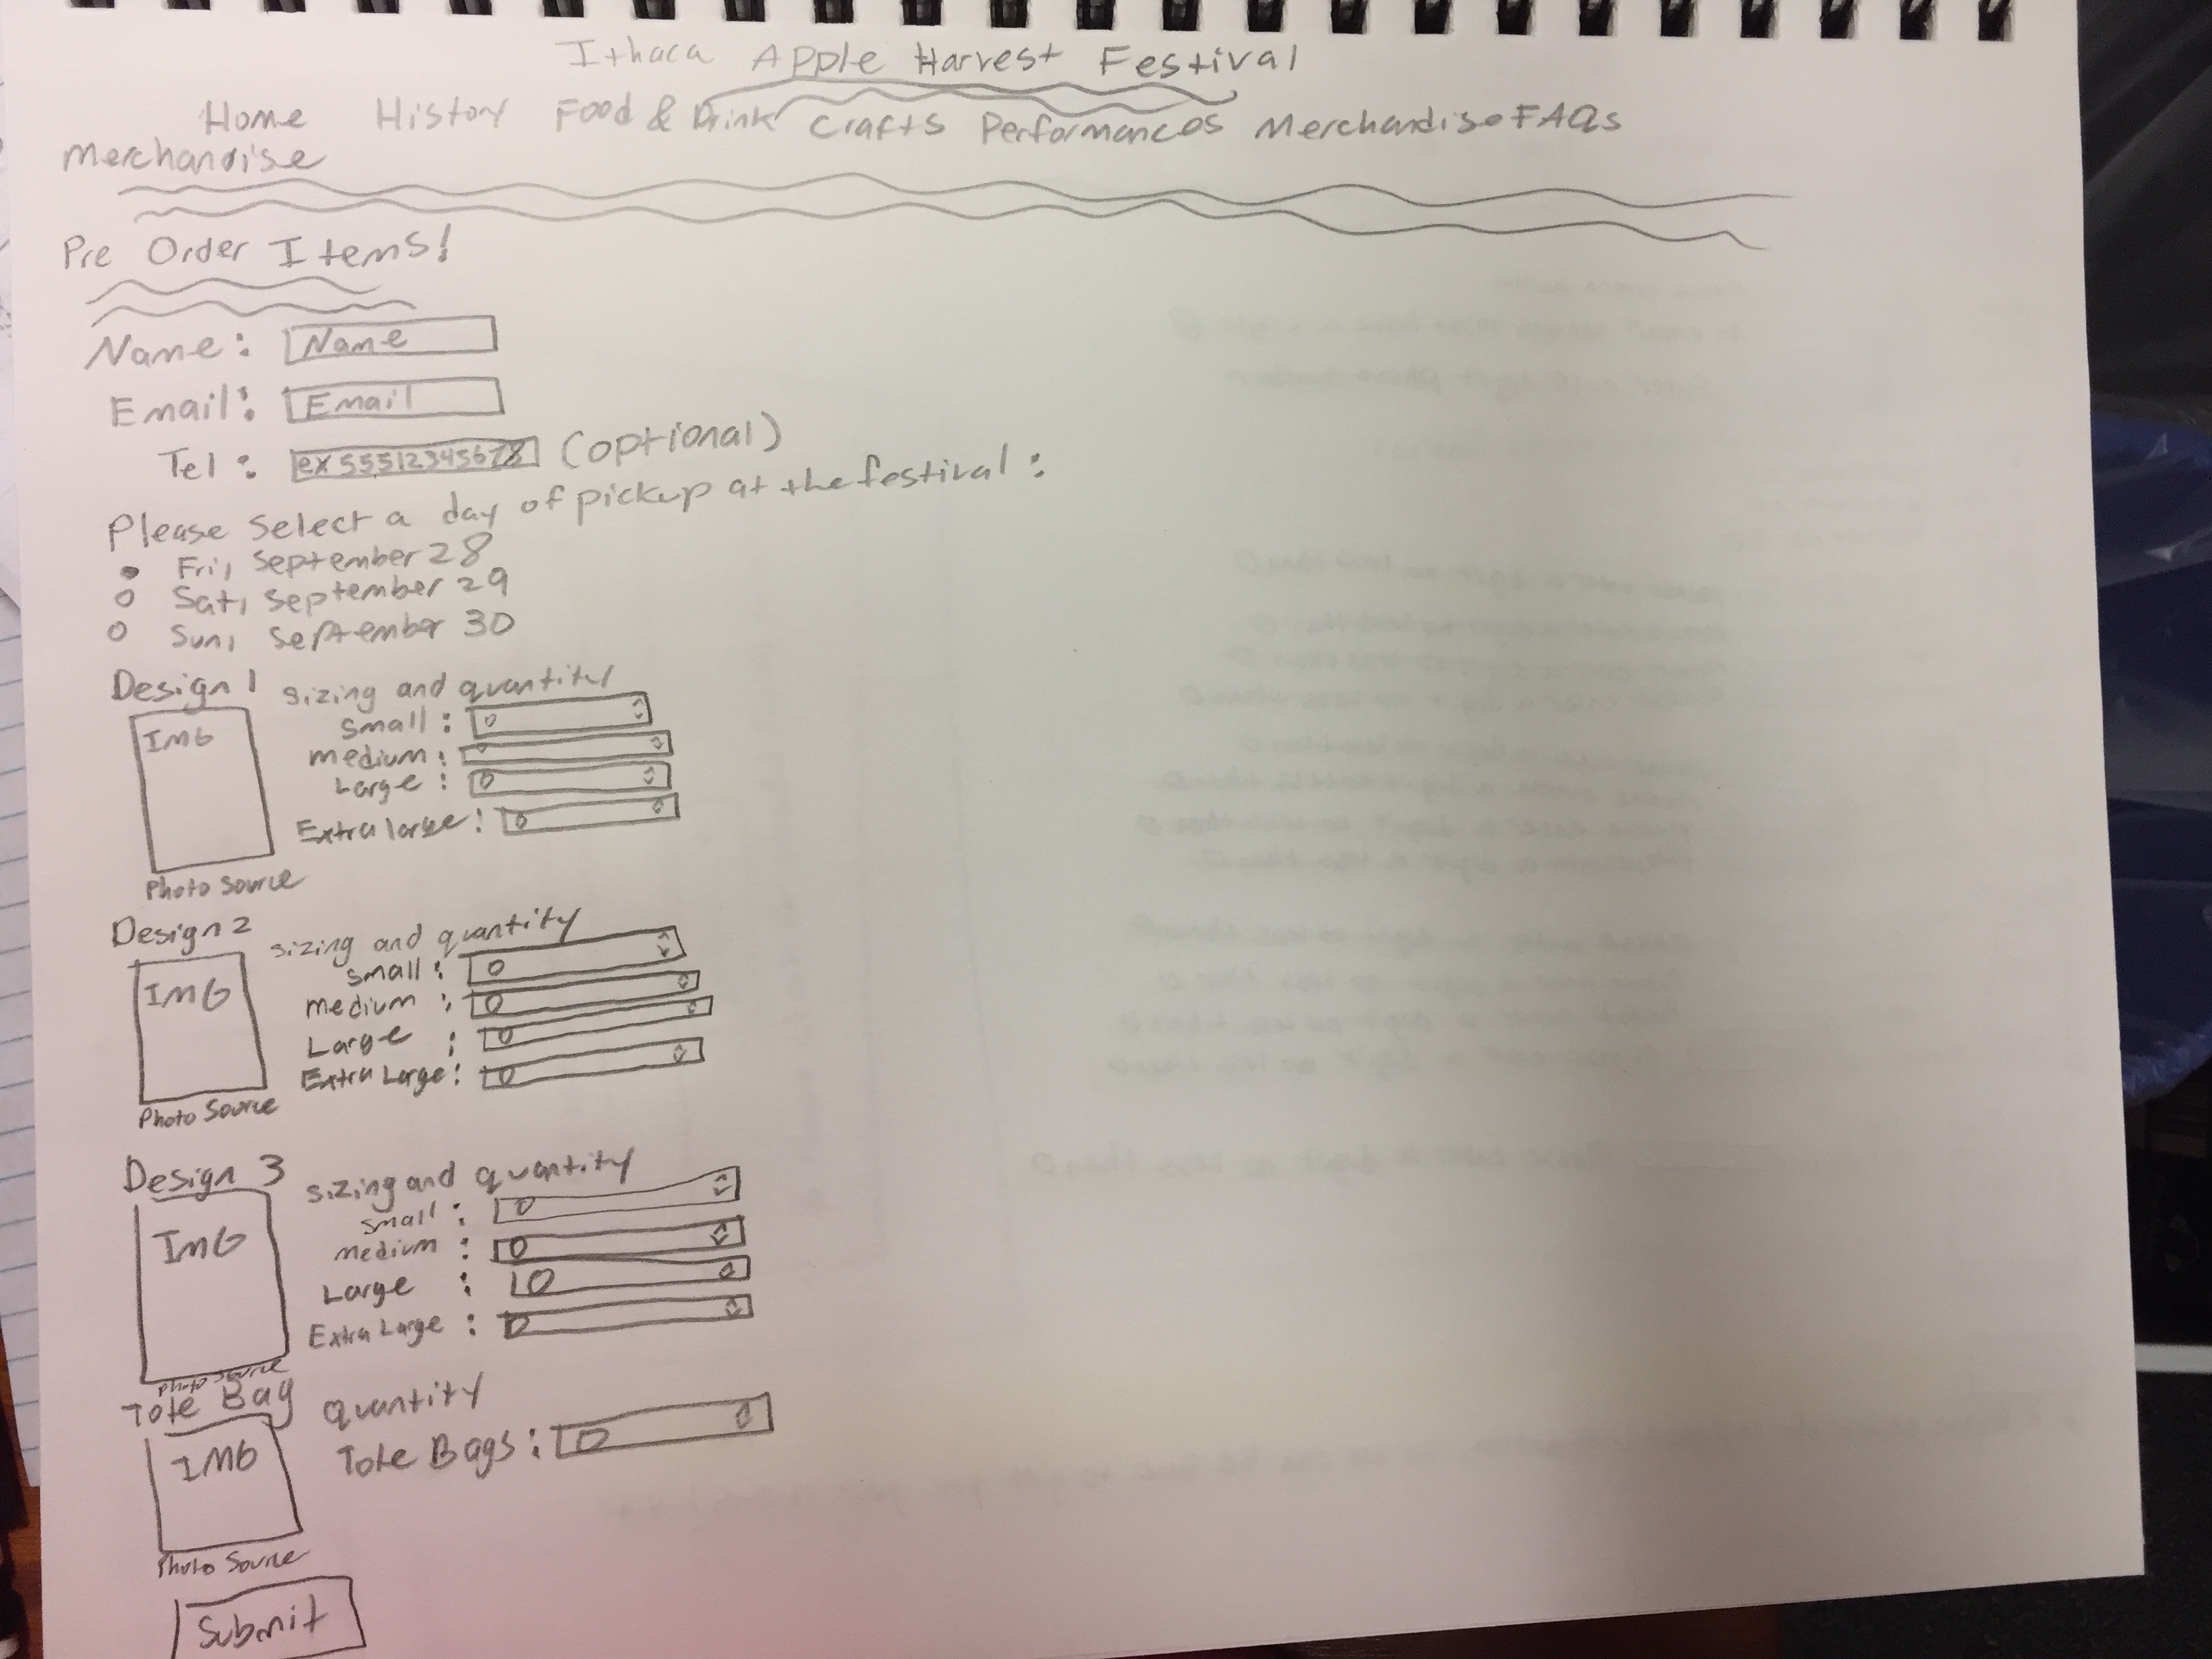 Ithaca Apple Harvest Festival
Home History Food & Drink Crafts Performances Merchandise FAQs
Merchandise
Pre Order Items!
Name: Name
Email: Email
Tel: (optional)
Please select a day of pickup at the festival:
Fri, September 28
Sat, September 29
Sun, September 30
Design 1 sizing and quantity
IMG
small: 0
medium: 0
Large: 0
Extra large: 0
Photo Source
Design 2 sizing and quantity
IMG
small: 0
medium: 0
Large: 0
Extra Large: 0
Photo Source
Design 3 sizing and quantity
IMG
small: 0
medium: 0
Large: 0
Extra Large: 0
Photo Source
Tote Bag quantity
IMG
Tote Bags: 0
Photo Source
Submit